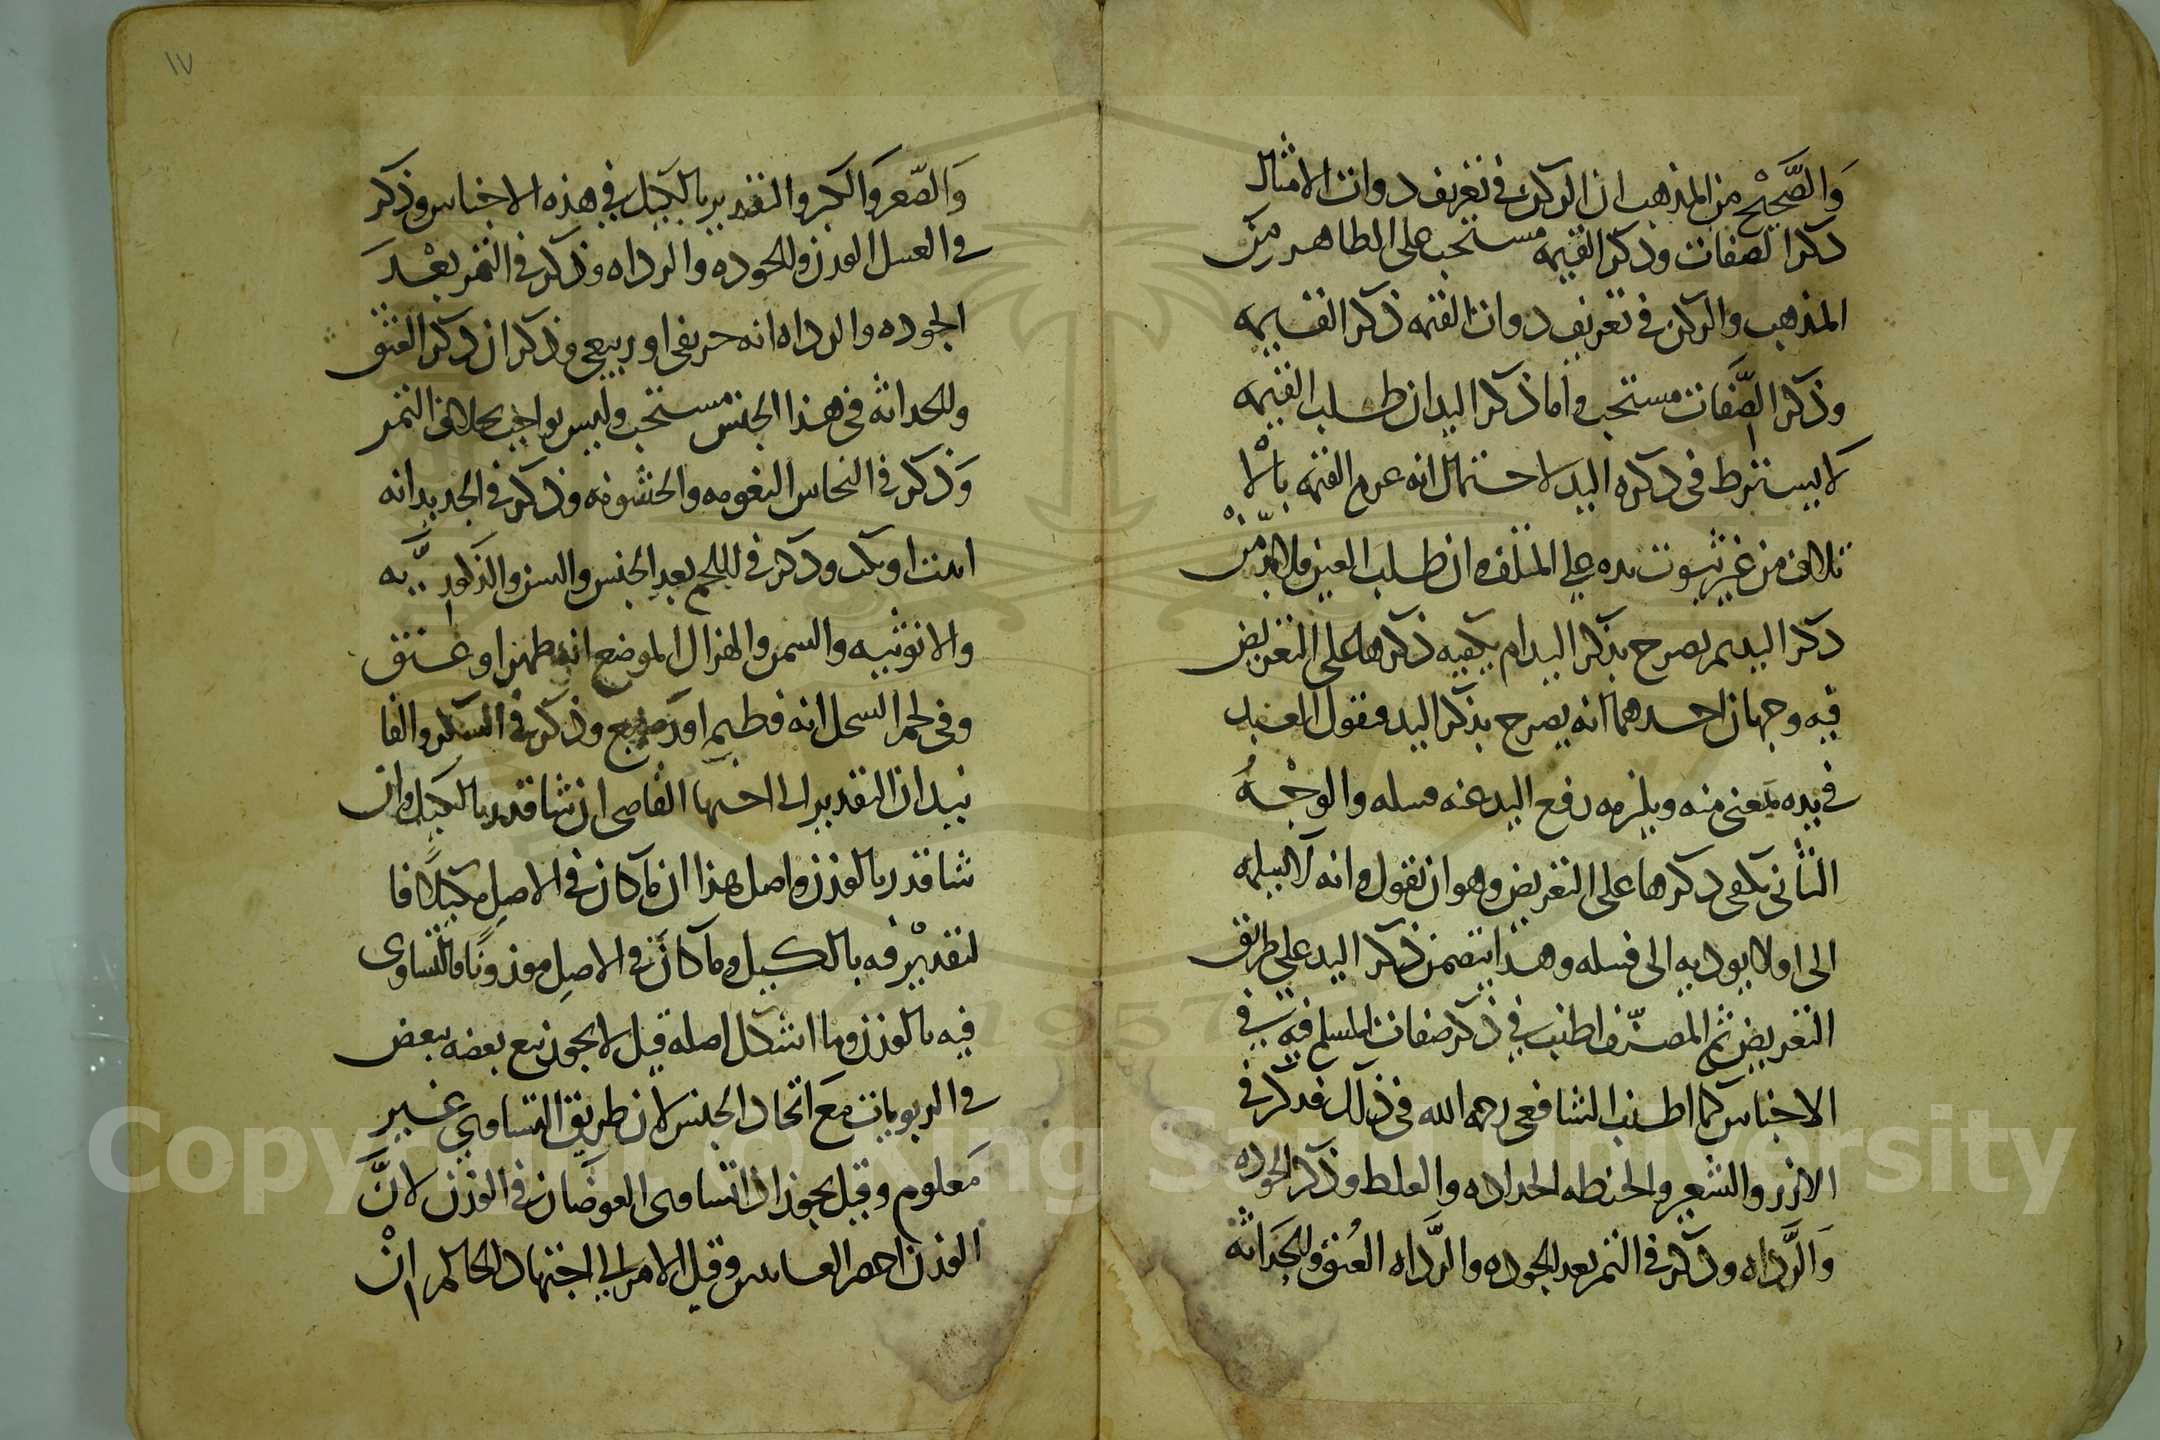 والصَّحيْح من المذهب ان الركن في تعريف دوات الامثال
دكر الصفات وذكر القيمه مستحب على الظاهر مِن
المذهب والركن في تعريف دوات القيمه ذكر القيمه
وذكر الصِّفات مستحب واما ذكر اليد ان طلب القيمه
لا يشترط في ذكره اليد لاحتمال انه غرم القيمه بالْا
تلاف من غير ثبوت يده على المتلف وان طلب العين فلا بدّ منْ
دكر اليد ثم يصرح بذكر اليد ام يكفيه ذكرها على التعريض
فيه وجهان احدهما انه يصرح بذكر اليد فيقول العبد
في يده يمعنى منه ويلزمه رفع اليد عنه فسله والوجْهُ
الثاني يكفي دكرها على التعريض وهو ان يقول وانه لا يسلمه
الى او لا يوديه الى فسله وهذا يتضمن ذكر اليد على طريق
التعريض ثم المصنّف اطنب في ذكر صفات المسلم فيه في
الاجناس كما اطنب الشافعي رحمه الله في ذلك فذكر في
الارز والشعير والحنطه الحداره والغلط وذكر الجوده
وَالرَّداه وذكر في التمر بعد الجوده والرَّداه العُتق والحَداثه
١٧
وَالصّغر وَالكبر والتقدير بالكيل في هذه الاجناس وذكر
في العسل الوزن والجوده والرداه وذكر في التمر بعْد
الجوده والرداه انه خريفي او ربيعي وذكر ان ذكر العتق
والحداثه في هذا الجنس مستحب وليس بواجب بخلاف التمر
وَذكر في النحاس النعومه والخشونه وذكر في الحديد انه
وذكر في اللحم بعد الجنس والسن والذكوريَّه
والانوثيه والسمن والهزال الموضع انه ظهر او عنق
وفي لحم السخل انه فطيم او رضيع وذكر في السكر والفا
نيد ان التقدير الى اجتهاد القاضي ان شا قدر بالكيل وان
شا قدر بالوزن واصل هذا ان ما كان في الاصل مكيلًا فا
لتقديْر فيه بالكيل وما كان في الاصل موزونًا فالتساوى
فيه بالوزن وما اشكل اصله قيل لا يجوز بيع بعضه ببعض
في الربويات مع اتحاد الجنس لان طريق التساوي غير
مَعلوم وقيل يجوز اذا تساوى العوضان في الوزن لانَّ
الوزن احصر وقيل الامر الى اجتهاد الحاكم انْ
Copyright to King Saud University
1957